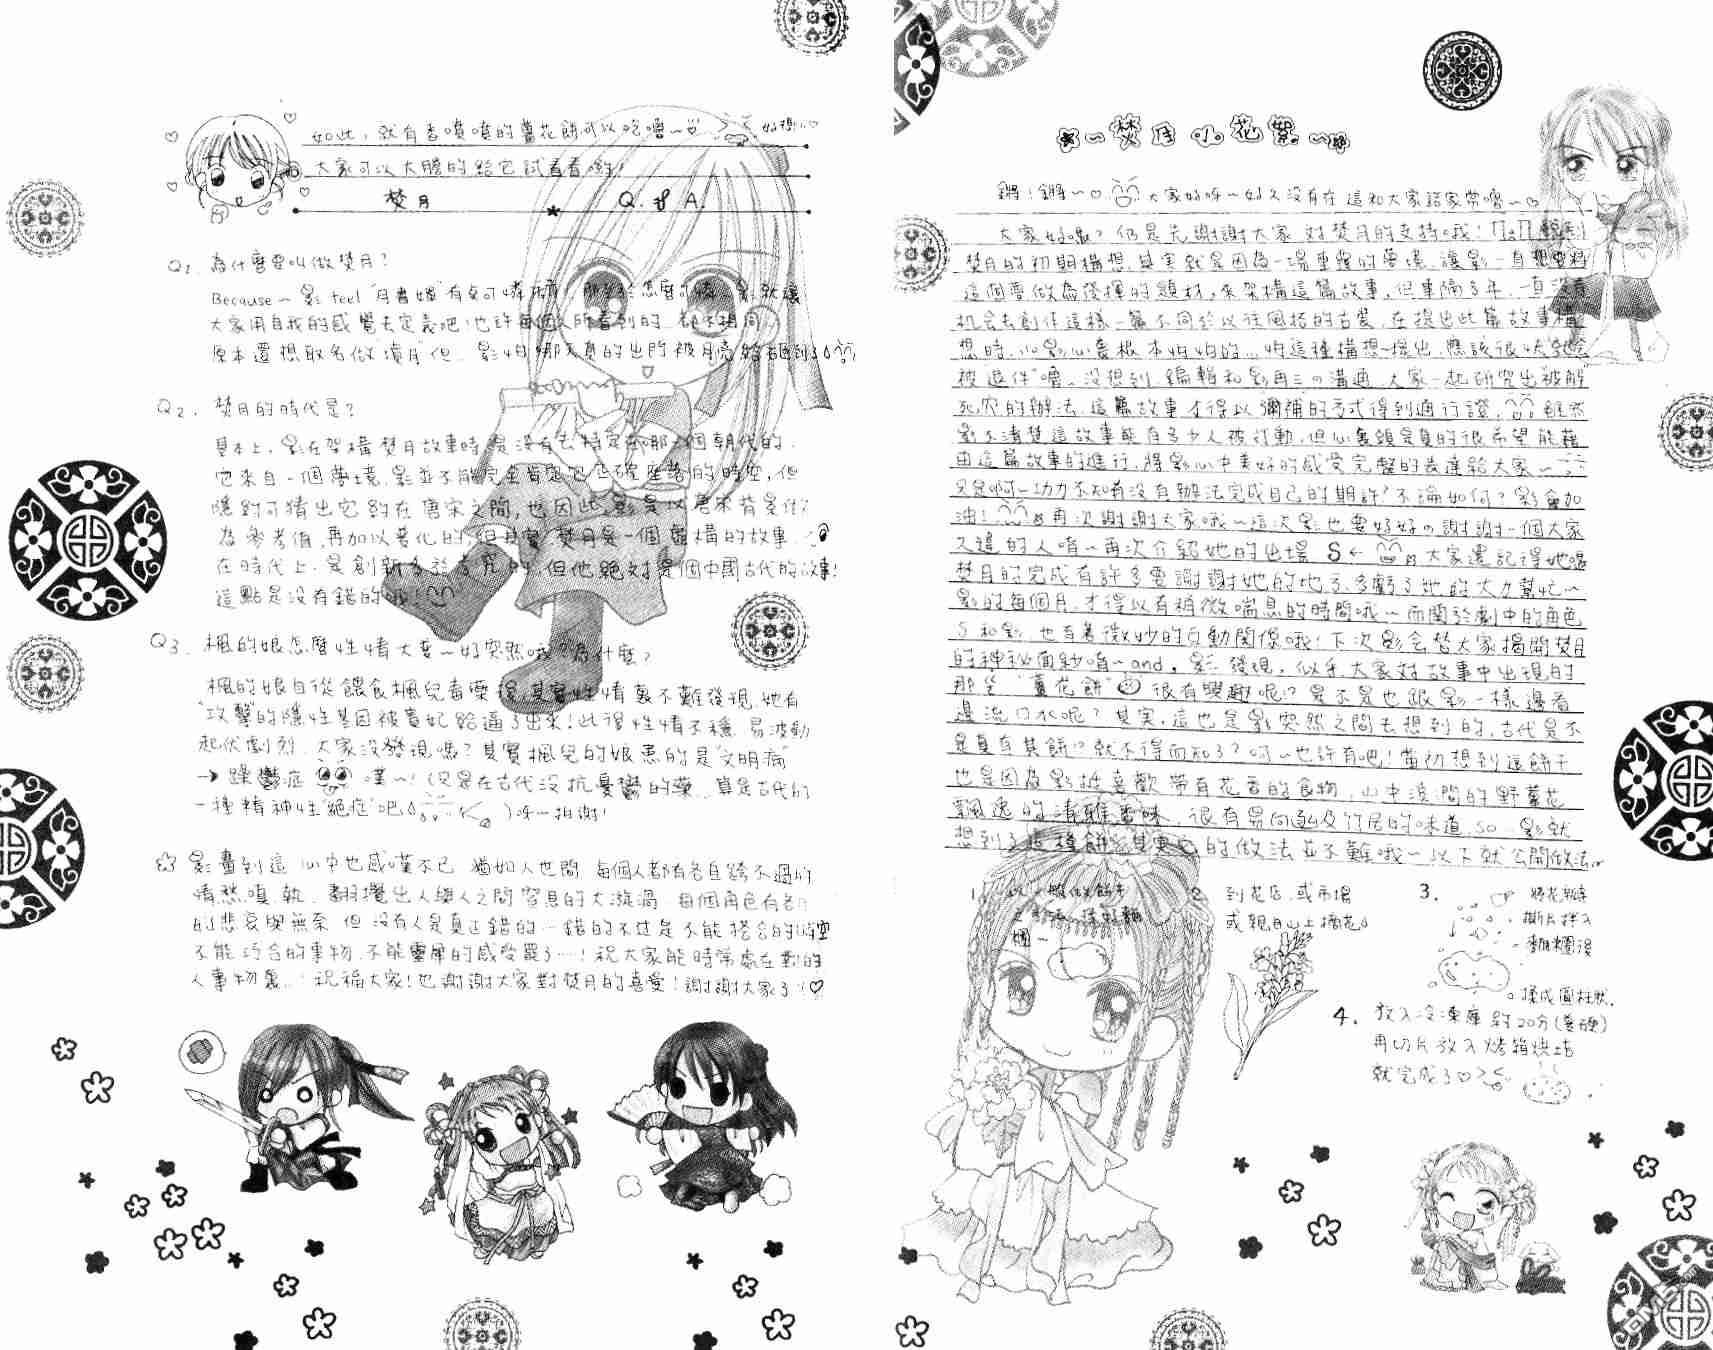 焚月小花絮
鏘!鏘~♡大家好呀~好久沒有在這和大家話家常嚕~♡
大家好嗎?仍是先謝謝大家對焚月的支持哦!
焚月的初期構想,其實就是因為一場重疊的夢境,讓影一直想要將
這個夢做為發揮的題材,來架構這篇故事,但事隔多年,一直沒有
机会去創作這樣一篇不同於以往風格的古裝,在提出此篇故事構
想時,小影心裏根本怕怕的…怕這種構想一提出,應該很快就會
被退件嚕。沒想到編輯和影再三の溝通,大家一起研究出被解
死穴的辦法,這篇故事才得以彌補的方式得到通行證,雖然
影不清楚這故事能有多少人被打動,但心裏頭是真的很希望能藉
由這篇故事的進行,將影心中美好的感受完整的表達給大家~
只是啊~功力不知有沒有辦法完成自己的期許?不論如何?影會加
油!再次謝謝大家哦~這次影也要好好の謝謝一個大家
又違的人唷~再次介紹她的出場 S←大家還記得她嗎
焚月的完成有許多要謝謝她的地方,多虧了她的大力幫忙~
影的每個月,才得以有稍微喘息的時間哦~而關於劇中的角色
S和影,也有著微妙的互動關係哦!下次影会替大家揭開焚月
的神秘面紗唷~and,影發現,似乎大家對故事中出現的
那些"薑花餅"很有興趣呢!?是不是也跟影一樣邊看
邊流口水呢?其實,這也是影突然之間去想到的,古代是不
是真有其餅!?就不得而知了?呵~也許有吧!當初想到這餅干
也是因為影挺喜歡帶有花香的食物,山中溪間的野薑花
飄逸的清雅香味,很有易向及竹居的味道,so…影就
想到了這種餅,其實它的做法並不難哦~以下就公開做法。
1.以一般做餅干
2.到花店、或市場
或親自山上摘花。
3.將花瓣
撕片拌入
麵糰後
揉成圓柱狀.
4.放入冷凍庫約20分(變硬)
再切片放入烤箱烘培
就完成了♡
如此,就有香噴噴的薑花餅可以吃嚕~
大家可以大膽的給它試看看喲!
焚月 Q.&A.
Q1.為什麼要叫做焚月?
Because~影feel"月書媛"有点可憐,那至於怎麼可憐,影就讓
大家用自我的感覺去定義吧!也許每個人所看到的,都不相同…
原本還想取名做"瀆月"但…影怕哪天真的出門被月亮給石匝到了
Q2.焚月的時代是?
基本上,影在架構焚月故事時是沒有去特定在哪一個朝代的.
它來自一個夢境,影並不能完全肯定它正確座落的時空,但
隱約可猜出它約在唐宋之間,也因此,影是以唐宋背景做
為參考值,再加以變化的,但其實,焚月是一個虛構的故事,
在時代上,是創新多於考究的,但他絕對是個中國古代的故事!
這點是沒有錯的哦!
Q3.楓的娘怎麼性情大変~好突然哦?為什麼?
楓的娘自從餵食楓兒毒藥後,其實性情裏不難發現,她有
"攻擊"的隱性基因被貴妃給逼了出來!此後性情不穩,易波動
起伏劇烈,大家沒發現嗎?其實楓兒的娘患的是"文明病"
→躁鬱症 噗~!(只是在古代沒抗憂鬱的藥,算是古代的
一種精神性"絕症"吧)呀~拍謝!
☆影畫到這,心中也感嘆不已,猶如人世間,每個人都有各自跨不過的
情愁嗔執,翻攪出人與人之間窒息的大漩渦,每個角色有各自
的悲哀與無奈,但沒有人是真正錯的…錯的不过是不能搭合的時空
不能巧合的事物,不能靈犀的感受罷了…!祝大家能時常處在對的
人事物裏…祝福大家!也謝謝大家對焚月的喜愛!謝謝大家了!♡